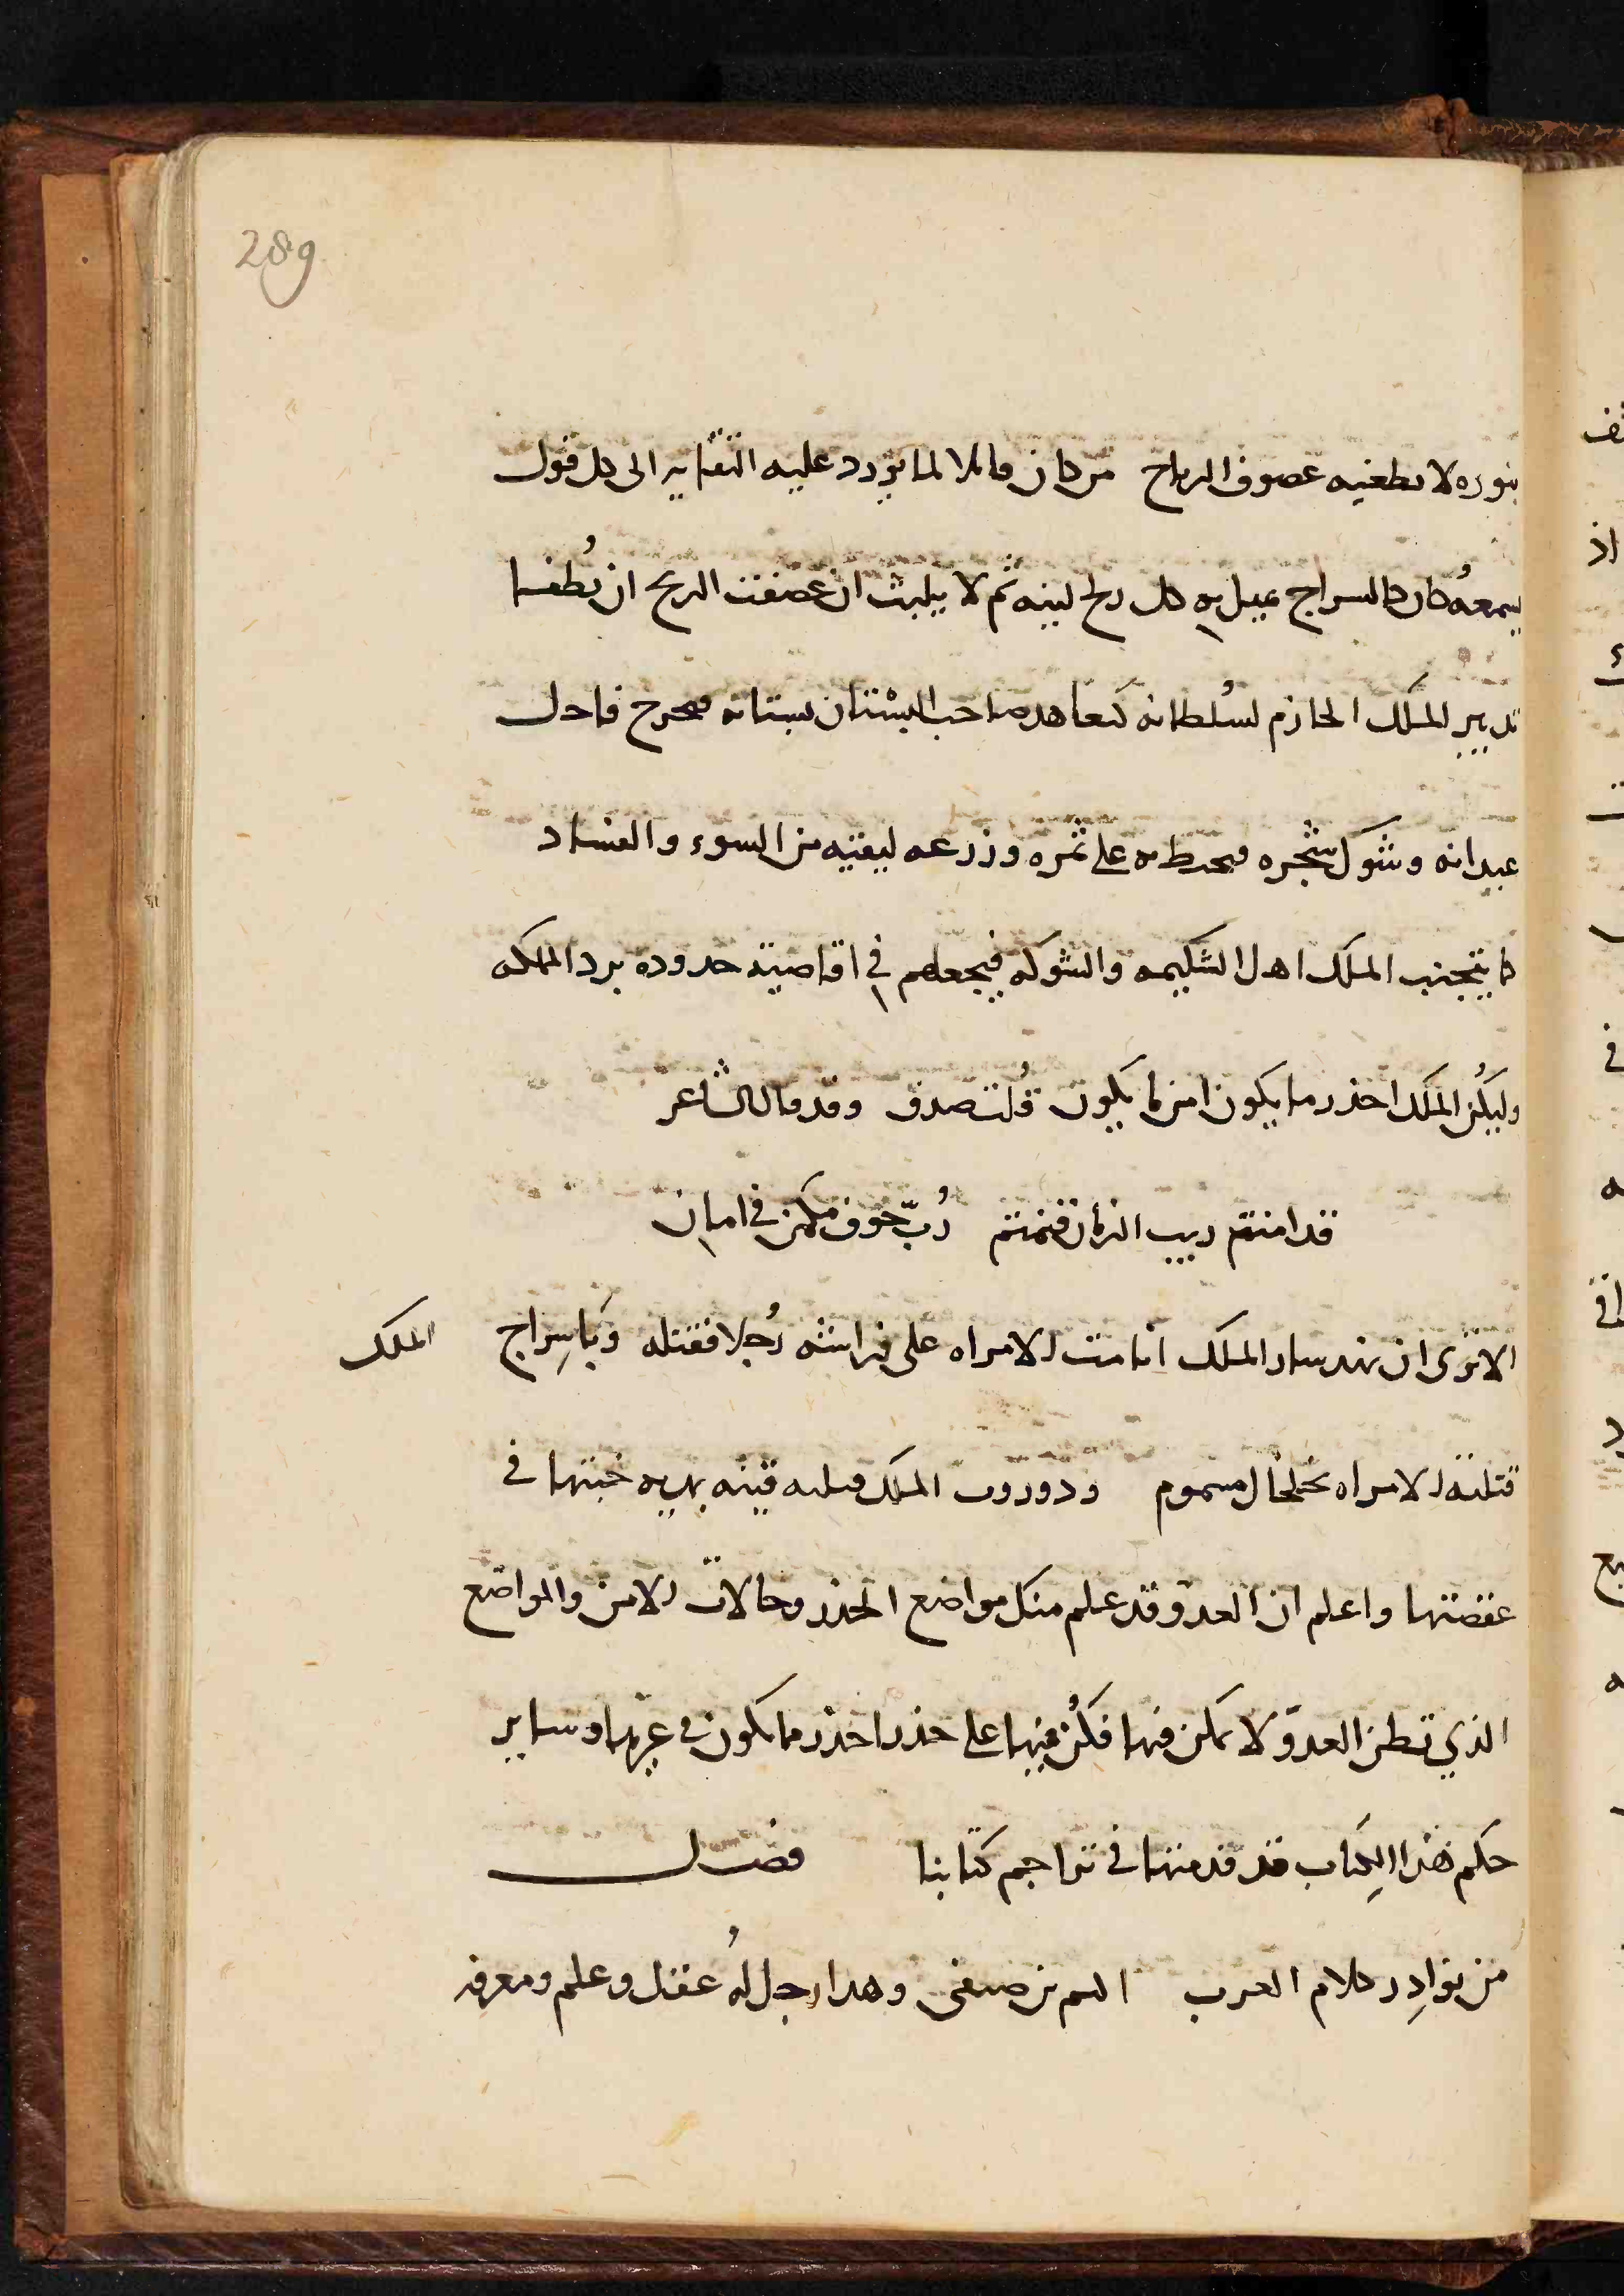 289
بنوره لا تطفيه عصوف الرياح من كان قابلا لما يورد عليه الثقاه الى كل قول
يسمعه كان كالسراج تميل به كل ريح لينه ثم لا يلبث ان عصفت الريح ان يُطفا
تدبير الملك الحازم لسُلطانه كتعاهد صاحب البستان بستانه فيخرج فاحل
عيدانه وشوك شجره فيحيط به على ثمره وزرعه ليقيه من السوء والفساد
كما يتجنب الملك اهل الشكيمه والشوكه فيجعلهم في اقاصية حدوده برد المملكه
وليكُن الملك احذر ما يكون امن ما يكون قُلت صدق وقد قال الشاعر
قد امنتم ريب الزمان فنمتم رُبّ خوف مكمن في امان
الا ترى ان الملك انامت الامراه على فراشه رُجلا فقتله وباسِراج الملك
قتلته الامراه بخلخال مسموم الملك قتلته قينه بمديه خبتها في
عقصتها واعلم ان العدوّ قد علم منك مواضع الحذر وحالات الامن والمواضع
الذي تظن العدوّ لا يمكن فيها فكُن فيها على حذر احذر ما تكون في غيرها وساير
حكم هذا الكِتاب قد قدمنها في تراجم كتابنا فصل
من نوادِر كلام العرب اكثم بن صيفى وهذا رجل لهُ عقل وعلم ومعرفه